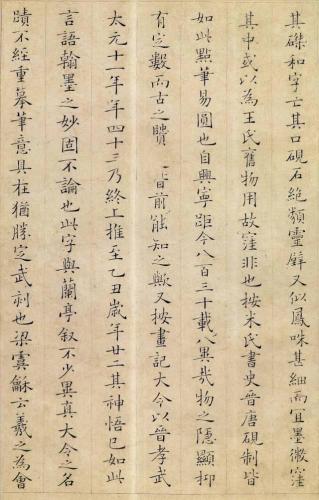 其磔和字亡其口硯石絶類靈璧又似鳳咮甚細而宜墨微窪
其中或以為王氏舊物用故窪非也按米氏書史晉唐硯制皆
如此點筆易圓也自興寧距今八百三十載八異哉物之隱顯抑
有定數而古之 皆前能知之歟又按畫記大令以晉孝武
太元十一年年四十三乃終上推至乙丑歲年廿二其神悟已如此
言語翰墨之妙固不論也此字與蘭亭叙不少異真大令之名
蹟不經重摹筆意具在猶勝定武刻也梁虞龢云羲之為會